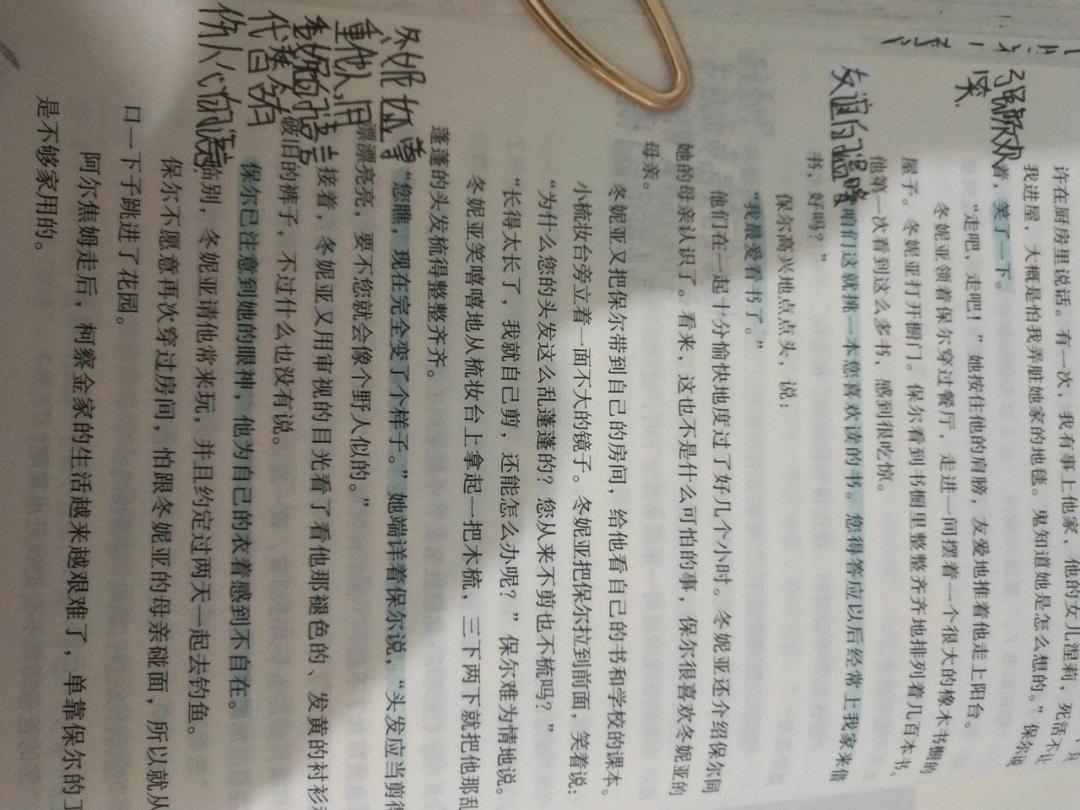 许在厨房里说话。有一次，我有事上他家，他的女儿涅莉，死活不让
我进屋，大概是怕我弄脏她家的地毯。鬼知道她是怎么想的。”保尔说
着，笑了一下。
“走吧，走吧！”她按住他的肩膀，友爱地推着他走上阳台。
冬妮亚领着保尔穿过餐厅，走进一间摆着一个很大的橡木书橱的
屋子。冬妮亚打开橱门。保尔看到书橱里整整齐齐地排列着几百本书。
他第一次看到这么多书，感到很吃惊。
咱们这就挑一本您喜欢读的书。您得答应以后经常上我家来借
书，好吗？”
保尔高兴地点点头，说：
“我最爱看书了。”
他们在一起十分愉快地度过了好几个小时。冬妮亚还介绍保尔同
她的母亲认识了。看来，这也不是什么可怕的事，保尔很喜欢冬妮亚的
母亲。
冬妮亚又把保尔带到自己的房间，给他看自己的书和学校的课本。
小梳妆台旁立着一面不大的镜子。冬妮亚把保尔拉到前面，笑着说：
“为什么您的头发这么乱蓬蓬的？您从来不剪也不梳吗？”
“长得太长了，我就自己剪，还能怎么办呢？”保尔难为情地说。
冬妮亚笑嘻嘻地从梳妆台上拿起一把木梳，三下两下就把他那乱
蓬蓬的头发梳得整整齐齐。
“您瞧，现在完全变了个样子。”她端详着保尔说，“头发应当剪得
漂漂亮亮，要不您就会像个野人似的。”
接着，冬妮亚又用审视的目光看了看他那褪色的、发黄的衬衫
破旧的裤子，不过什么也没有说。
保尔已注意到她的眼神，他为自己的衣着感到不自在。
临别，冬妮亚请他常来玩，并且约定过两天一起去钓鱼。
保尔不愿意再次穿过房间，怕跟冬妮亚的母亲碰面，所以就从
口一下子跳进了花园。
阿尔焦姆走后，柯察金家的生活越来越艰难了，单靠保尔的工
是不够家用的。
强颜欢
笑
友谊的温暖
冬妮亚尊
重他人用
委婉的语言
代替伤
伤人心的